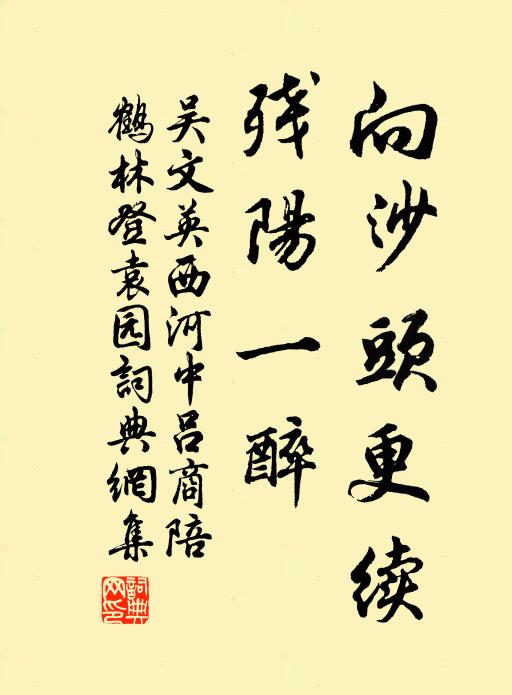 向沙頭更续
残陽一醉
吴文英西河中吕商陪
鶴林登袁园詞典網集
詞典网印